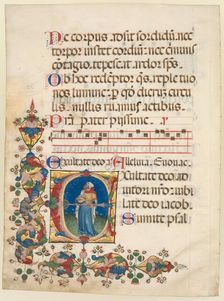 Ne corpus adsit sordidum: nec
torpor instet cordium: nec criminis
contagio tepescat ardor sps.
Ob hoc redemptor quesumus reple tuo
nos lumine: per quod dierum circu
lis nullis ruamus actibus.
Presta pater piissime.
Exultate deo Alleluia Euouae
Exultate deo ad
iutori nostro: iub
ilate deo iacob.
Sumite psal